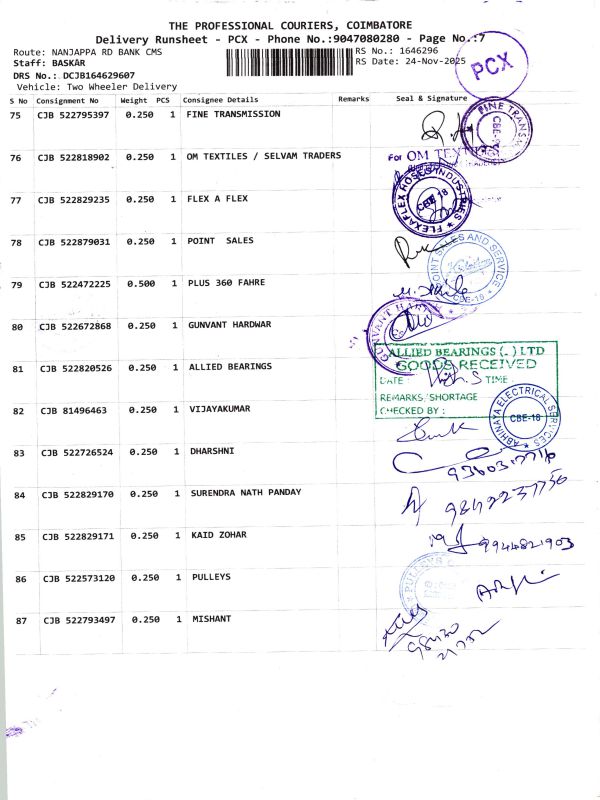 THE PROFESSIONAL COURIERS, COIMBATORE
Delivery Runsheet - PCX - Phone No.:9047080280 - Page No.:7
Route: NANJAPPA RD BANK CMS RS No.: 1646296
Staff: BASKAR RS Date: 24-Nov-2025
PCX
DRS No.: DCJB164629607
Vehicle: Two Wheeler Delivery
S No Consignment No Weight PCS Consignee Details Remarks Seal & Signature
75 CJB 522795397 0.250 1 FINE TRANSMISSION
FINE TRANS
76 CJB 522818902 0.250 1 OM TEXTILES / SELVAM TRADERS
For OM TEXT
77 CJB 522829235 0.250 1 FLEX A FLEX
FLEXAFLEX HOSES INDUSTRIES
CBE-18
78 CJB 522879031 0.250 1 POINT SALES
POINT SALES AND SERVICE
CBE-18
79 CJB 522472225 0.500 1 PLUS 360 FAHRE
80 CJB 522672868 0.250 1 GUNVANT HARDWAR
GUNVANT HA
81 CJB 522820526 0.250 1 ALLIED BEARINGS
ALLIED BEARINGS (.) LTD
GOODS RECEIVED
DATE : TIME :
REMARKS/SHORTAGE
CHECKED BY :
82 CJB 81496463 0.250 1 VIJAYAKUMAR
ABHINAYA ELECTRICAL SERVICES
CBE-18
83 CJB 522726524 0.250 1 DHARSHNI
84 CJB 522829170 0.250 1 SURENDRA NATH PANDAY
85 CJB 522829171 0.250 1 KAID ZOHAR
9944821903
86 CJB 522573120 0.250 1 PULLEYS
PULLEYS
87 CJB 522793497 0.250 1 MISHANT